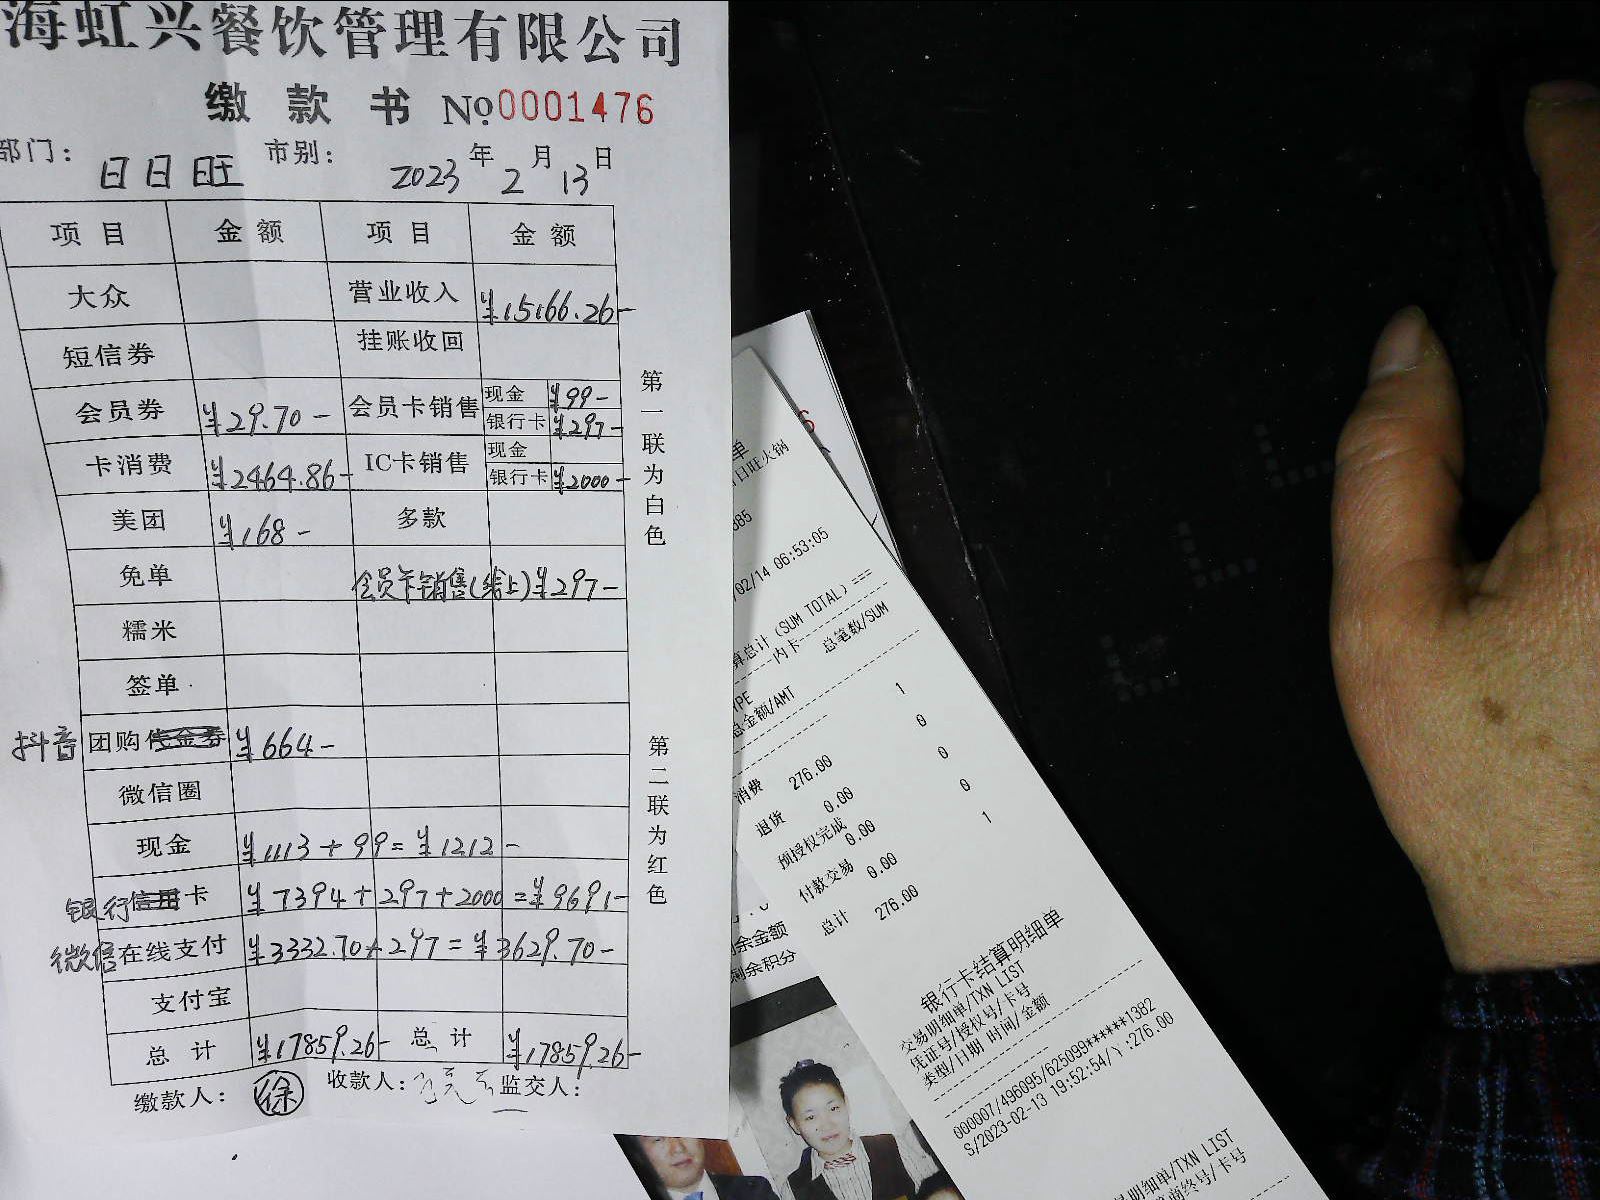 海虹兴餐饮管理有限公司
缴款书 No 0001476
部门： 日日旺 市别： 2023年2月13日
项目 金额 项目 金额
大众 营业收入 ¥15166.26-
短信券 挂账收回
会员券 ¥29.70- 会员卡销售 现金 ¥99-
银行卡 ¥297-
卡消费 ¥2464.86- IC卡销售 现金
银行卡 ¥2000-
美团 ¥168- 多款
免单 会员卡销售(线上) ¥297-
糯米
签单
抖音 团购代金券 ¥664-
微信圈
现金 ¥1113+99=¥1212-
银行信用卡 ¥7394+297+2000=¥9691-
微信在线支付 ¥3332.70+297=¥3629.70-
支付宝
总计 ¥17859.26- 总计 ¥17859.26-
缴款人： 徐 收款人： 监交人：
第一联为白色
第二联为红色
单
日旺火锅
885
02/14 06:53:05
算总计 (SUM TOTAL) ===
内卡
总笔数/SUM
YPE
总金额/AMT
消费 276.00 1
退货 0.00 0
预授权完成 0.00 0
付款交易 0.00 0
总计 276.00 1
余金额
剩余积分
银行卡结算明细单
交易明细单/TXN LIST
凭证号/授权号/卡号
类型/日期 时间/金额
000007/496095/625099******1382
S/2023-02-13 19:52:54/):276.00
易明细单/TXN LIST
商终号/卡号